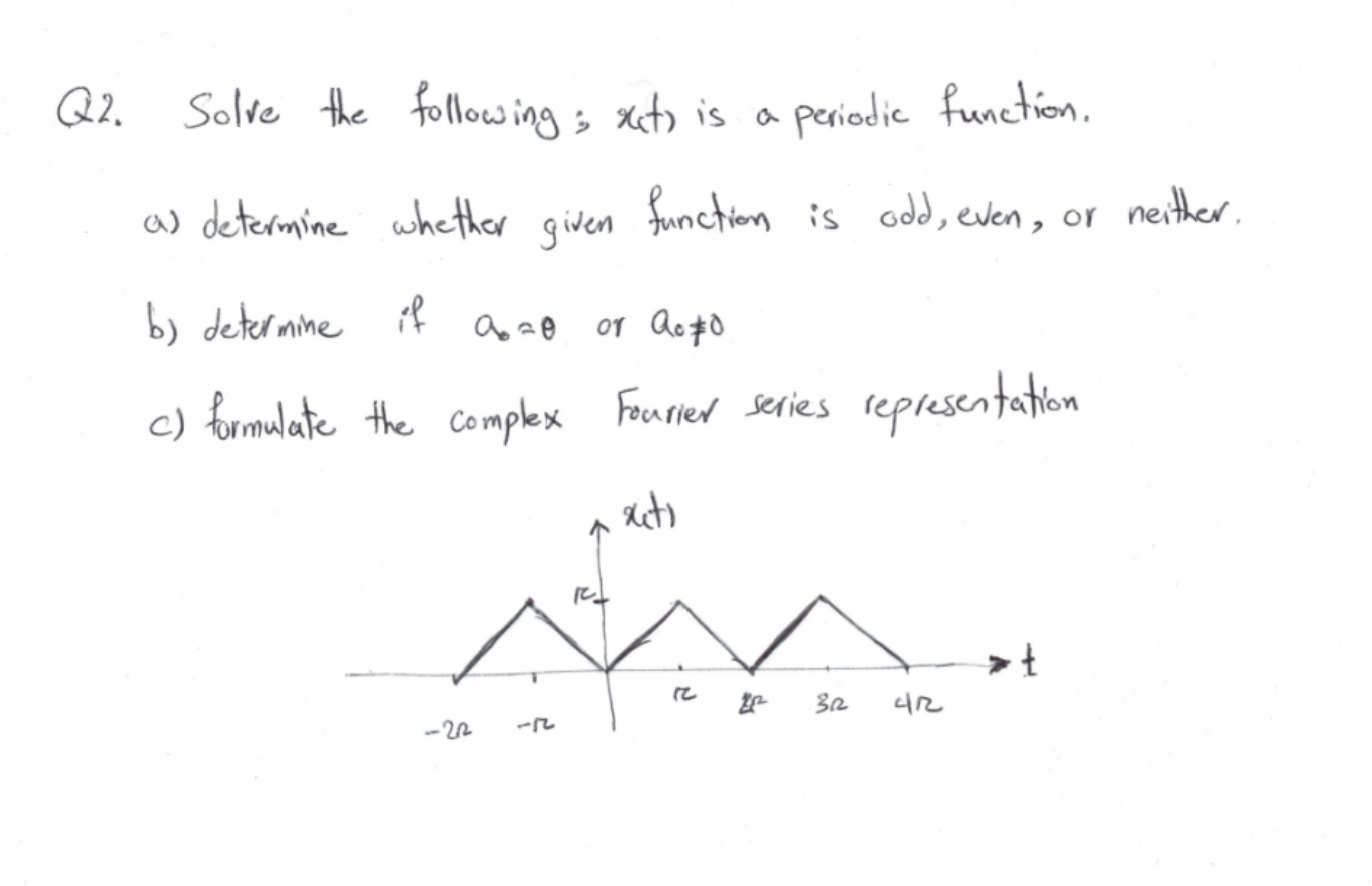 Q2. Solve the following; x(t) is a periodic function.
a) determine whether given function is odd, even, or neither.
b) determine if a₀=0 or a₀≠0
c) formulate the complex Fourier series representation
x(t)
π
t
π 2π 3π 4π
-2π -π